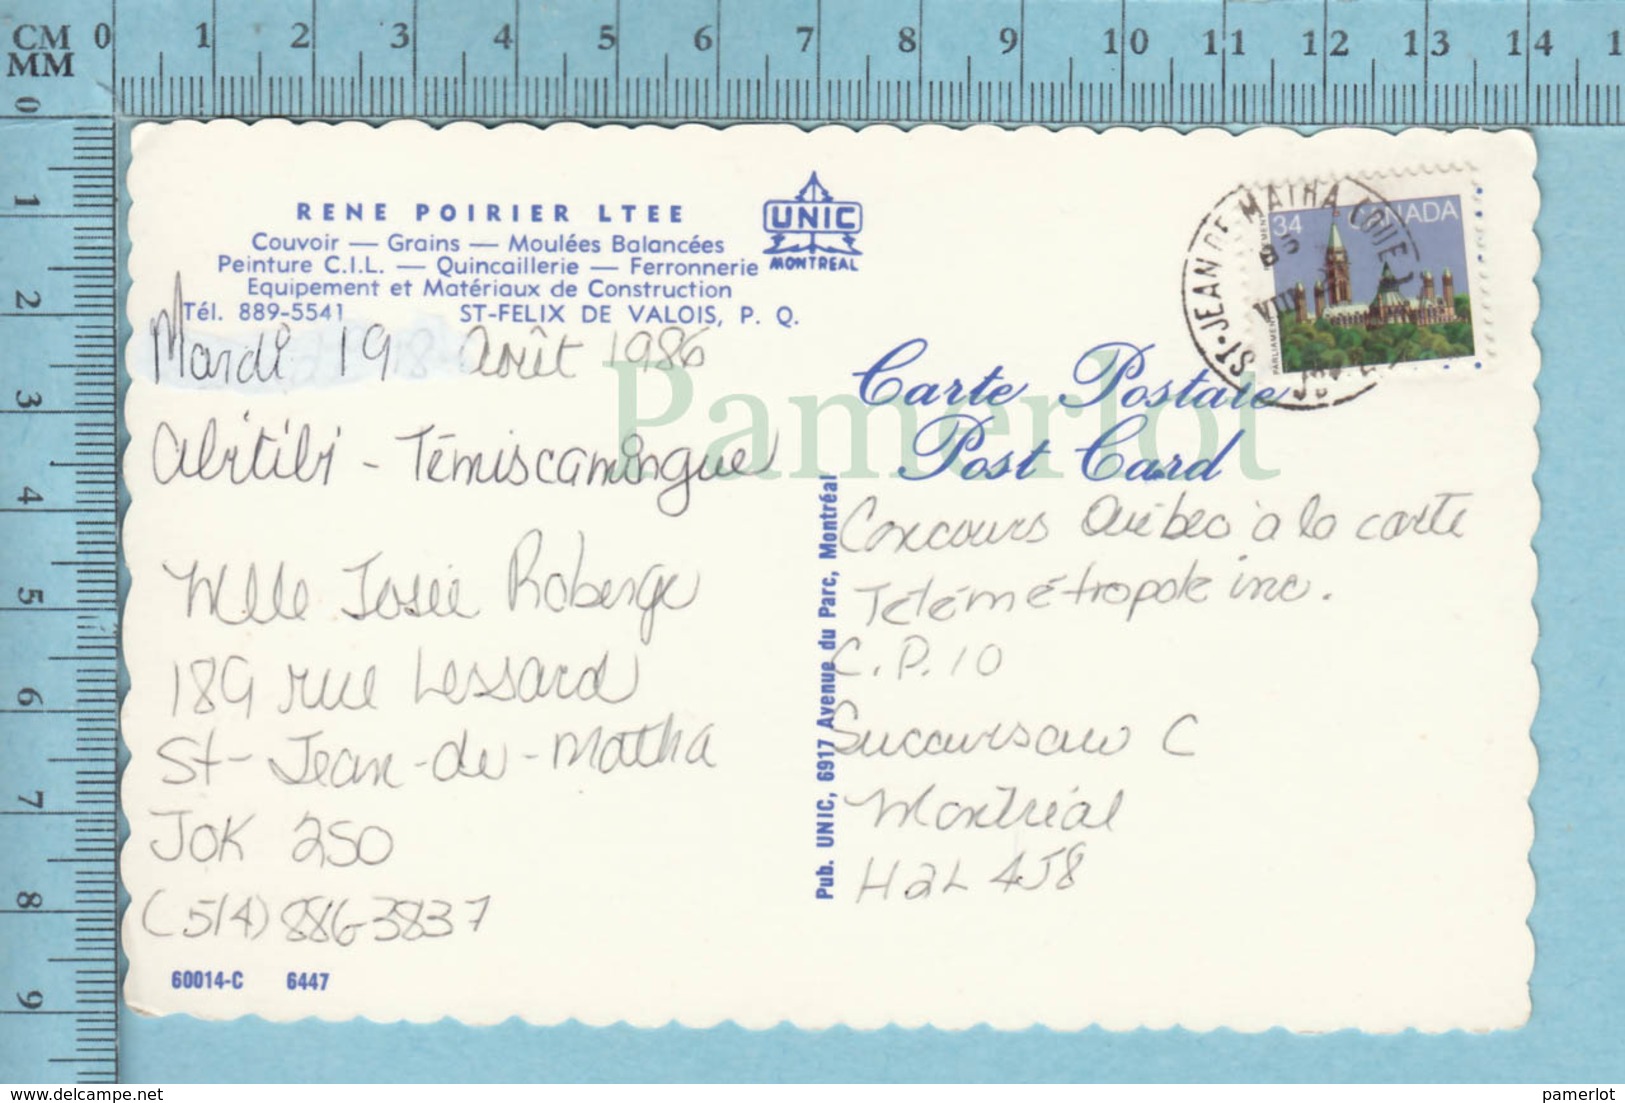 CM 0 1 2 3 4 5 6 7 8 9 10 11 12 13 14 1
MM
0 1 2 3 4 5 6 7 8 9
RENE POIRIER LTEE
Couvoir — Grains — Moulées Balancées
Peinture C.I.L. — Quincaillerie — Ferronnerie
Equipement et Matériaux de Construction
Tél. 889-5541 ST-FELIX DE VALOIS, P. Q.
UNIC
MONTREAL
Mardi 19 Août 1986
Abitibi - Témiscamingue
Mlle Josée Roberge
189 rue Lessard
St-Jean-de-Matha
J0K 2S0
(514) 886-3837
60014-C 6447
Pub. UNIC, 6917 Avenue du Parc, Montréal
Carte Postale
Post Card
Concours Québec à la carte
Télémétropole inc.
C.P. 10
Succursale C
Montréal
H2L 4J8
ST-JEAN DE MATHA (QUE.)
VIII
34 CANADA
PARLIAMENT
Pamerlot
pamerlot